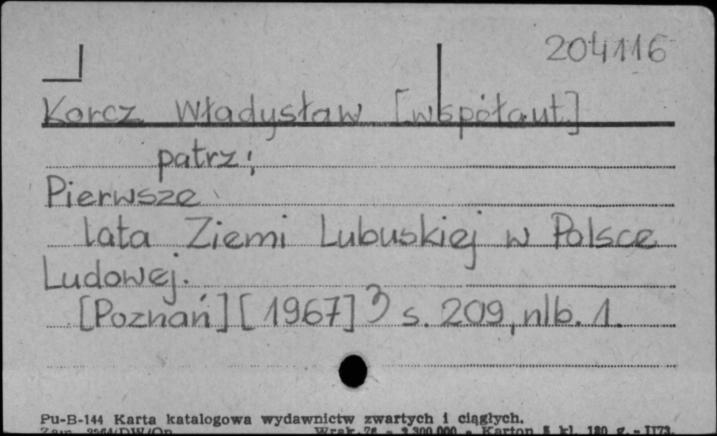 204116
Korcz Władysław [współaut.]
patrz:
Pierwsze
lata Ziemi Lubuskiej w Polsce
Ludowej.
[Poznań] [1967] s. 209, nlb. 1.
Pu-B-144 Karta katalogowa wydawnictw zwartych i ciągłych.
Karton kl. 180 g.